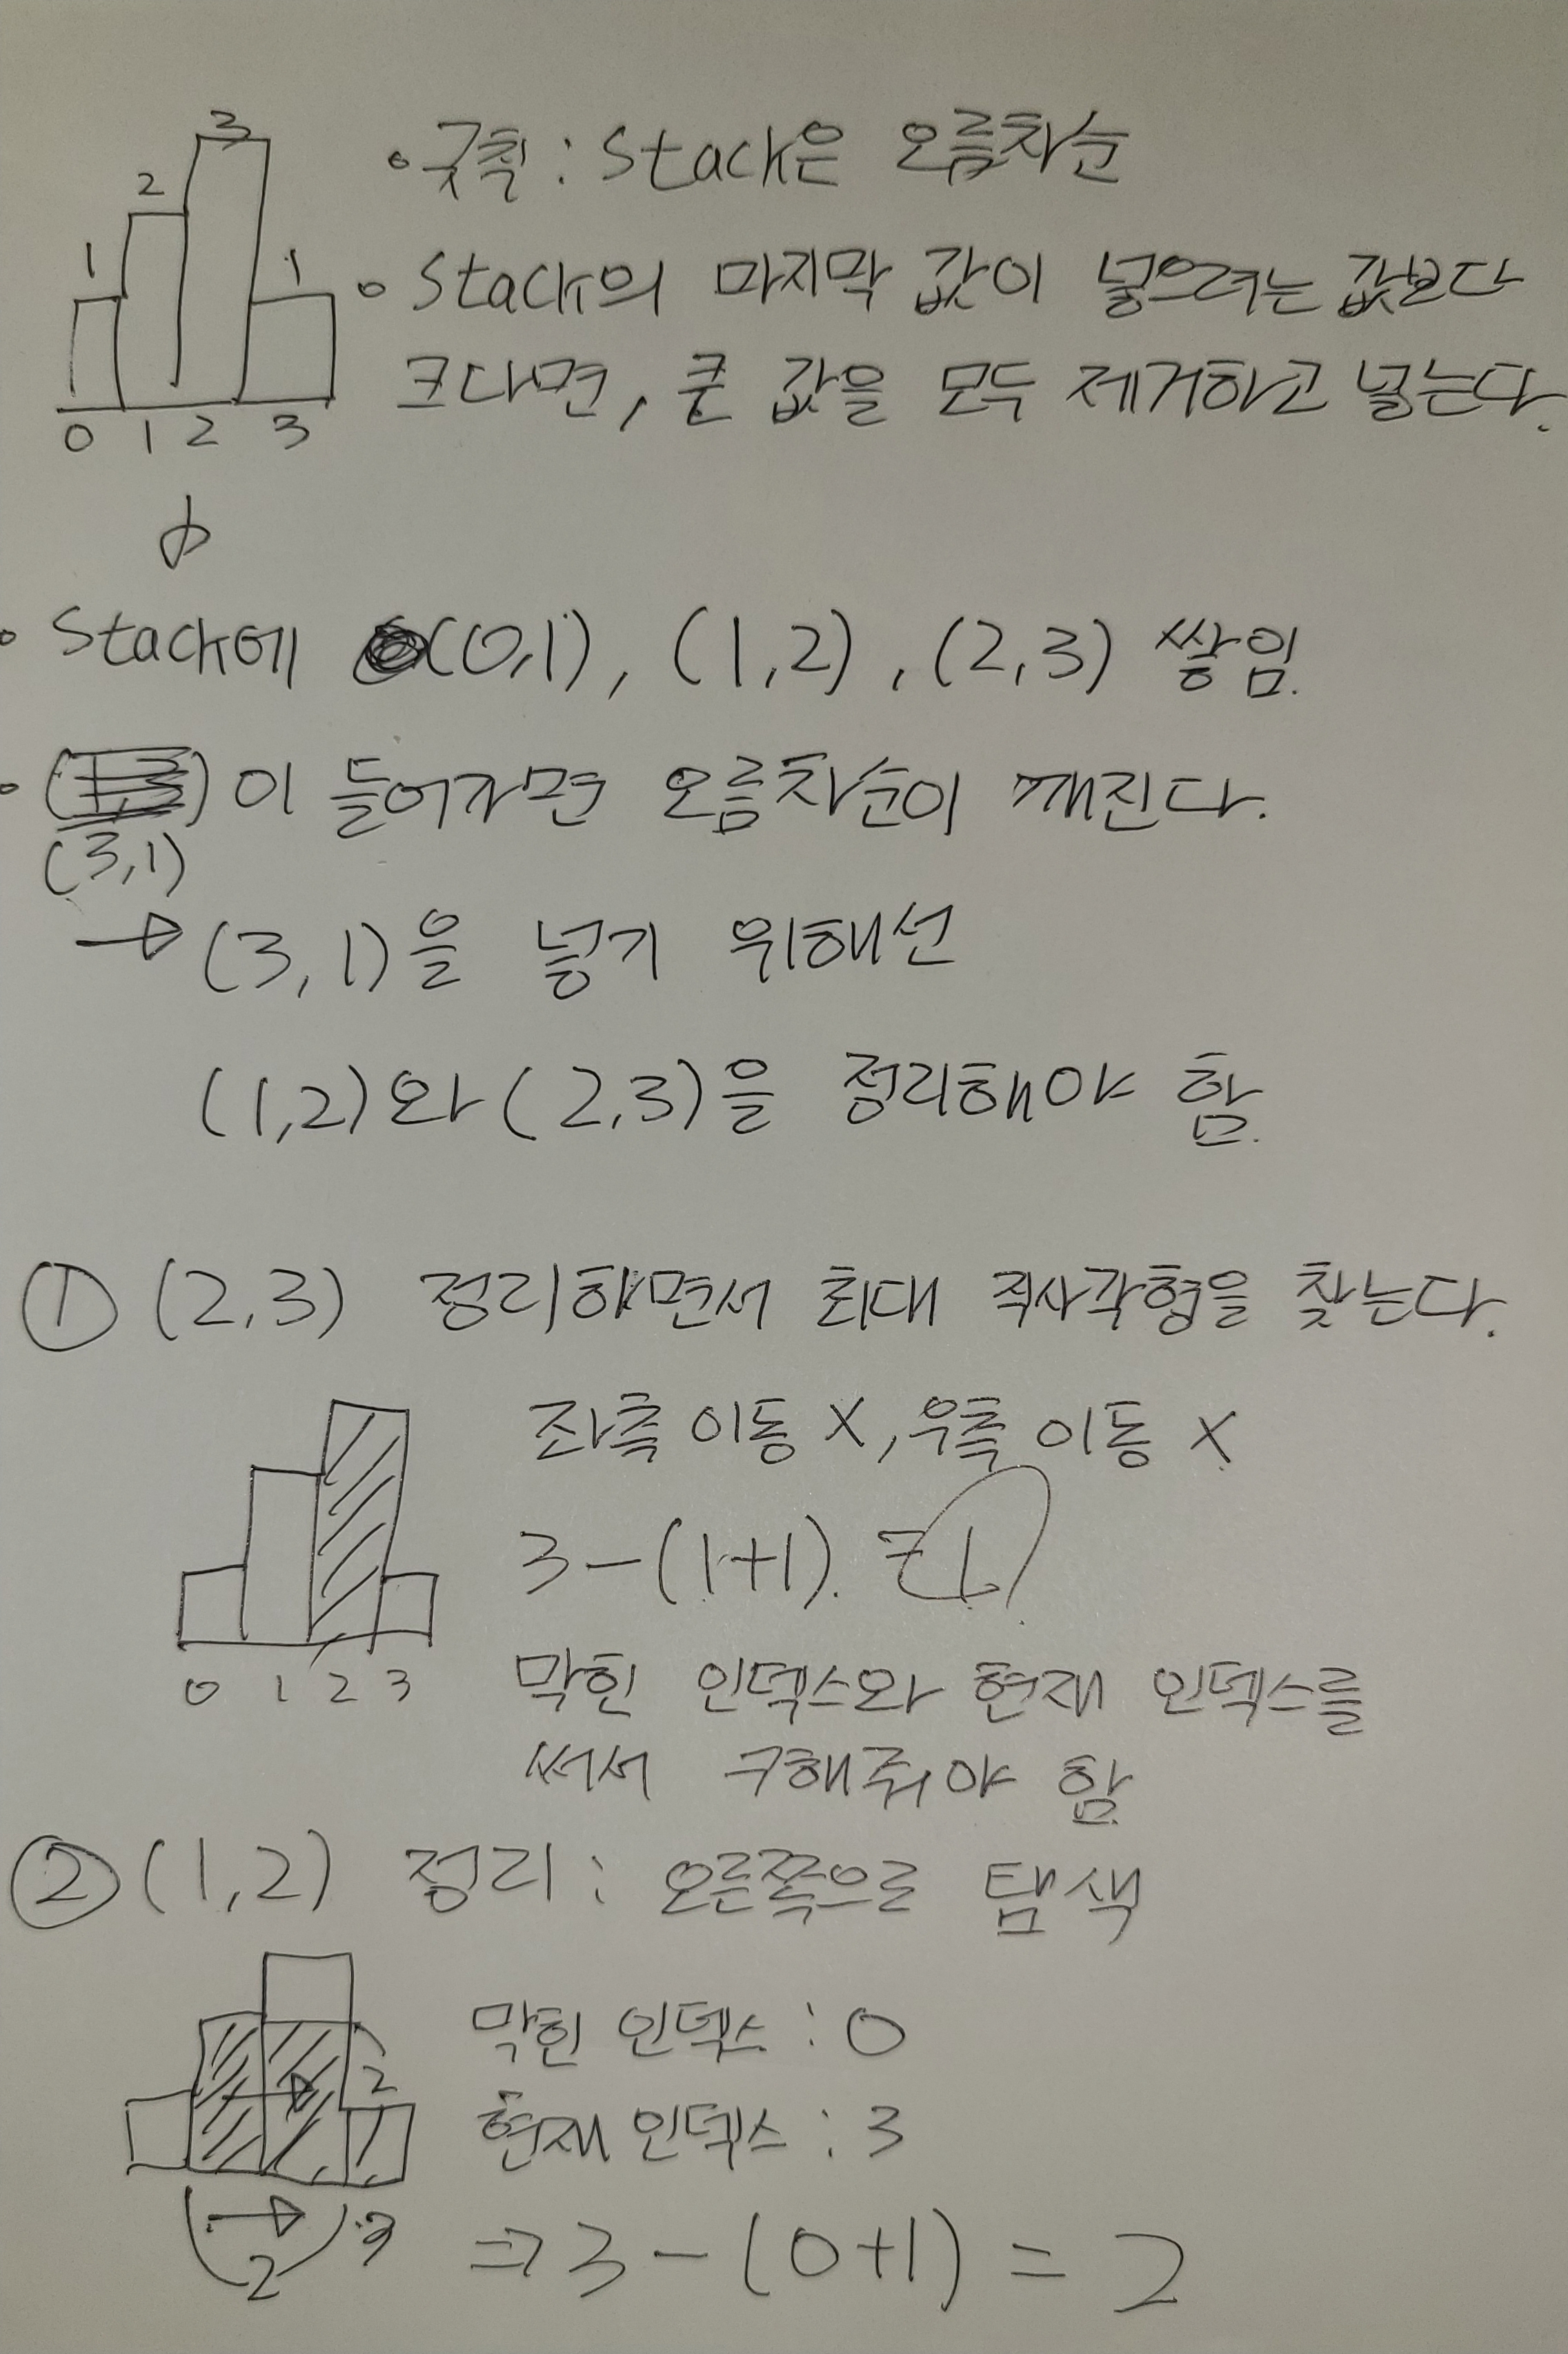 1 2 3 1
0 1 2 3
• 규칙 : Stack은 오름차순
• Stack의 마지막 값이 넣으려는 값보다
크다면, 큰 값을 모두 제거하고 넣는다.
• Stack에 (0,1), (1,2), (2,3) 쌓임.
• (3,1)이 들어가면 오름차순이 깨진다.
→ (3,1)을 넣기 위해선
(1,2)와 (2,3)을 정리해야 함.
① (2,3) 정리하면서 최대 직사각형을 찾는다.
좌측 이동 X, 우측 이동 X
3-(1+1) = 1
0 1 2 3
막힌 인덱스와 현재 인덱스를
써서 구해줘야 함
② (1,2) 정리 : 오른쪽으로 탐색
막힌 인덱스 : 0
현재 인덱스 : 3
2
2
⇒ 3-(0+1) = 2